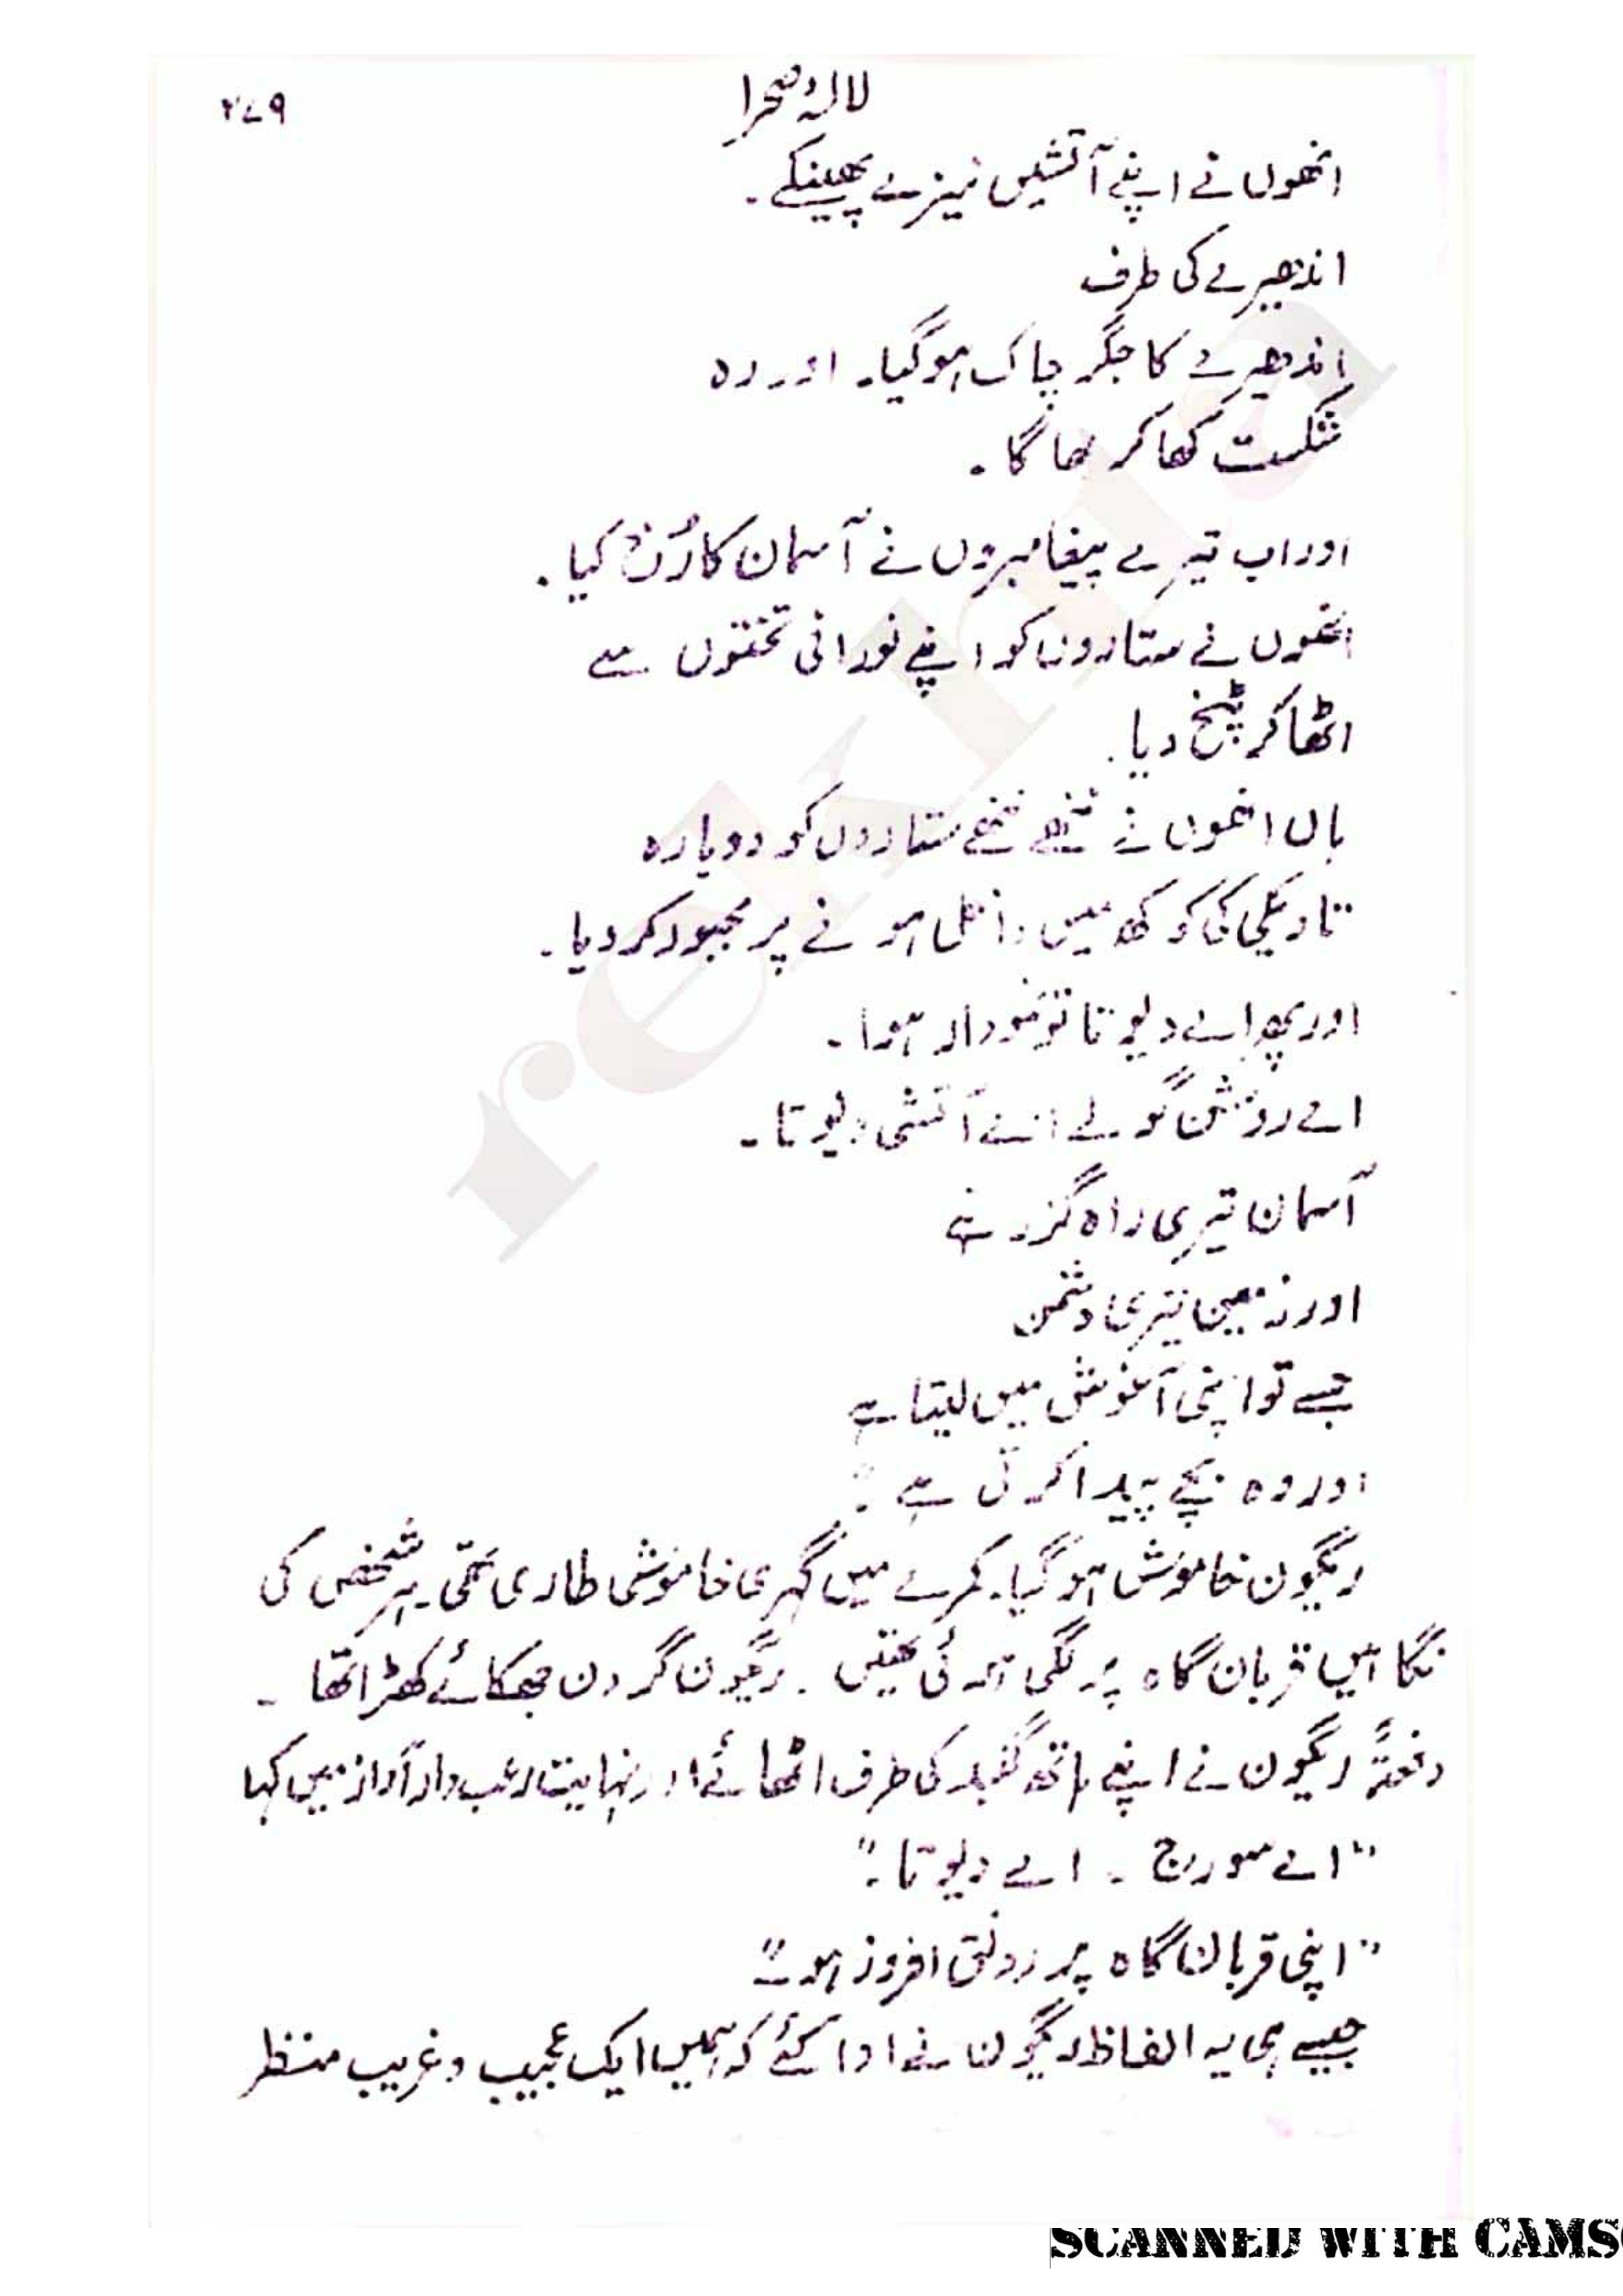 لالۂ صحرا
۲۷۹
انھوں نے اپنے آتشیں نیزے پھینکے۔
اندھیرے کی طرف
اندھیرے کا جگر چاک ہو گیا۔ اور وہ
شکست کھا کر بھاگا۔
اور اب تیرے پیغامبروں نے آسمان کا رُخ کیا۔
انھوں نے ستاروں کو اپنے نورانی تختوں سے
اٹھا کر پٹخ دیا۔
ہاں انھوں نے ننھے ننھے ستاروں کو دوبارہ
تاریکی کی کوکھ میں داخل ہونے پر مجبور کر دیا۔
اور پھر اے دیوتا تو نمودار ہوا۔
اے روشن گولے اے آتشی دیوتا۔
آسمان تیری راہ گزر ہے
اور زمین تیری دشمن
جسے تو اپنی آغوش میں لیتا ہے
اور وہ بچے پیدا کرتی ہے۔"
ریگون خاموش ہو گیا۔ کمرے میں گہری خاموشی طاری تھی۔ ہر شخص کی
نگاہیں قربان گاہ پر لگی ہوئی تھیں۔ ریگون گردن جھکائے کھڑا تھا۔
دفعتہً ریگون نے اپنے ہاتھ گنبد کی طرف اٹھائے اور نہایت رعب دار آواز میں کہا
"اے سورج ۔ اے دیوتا۔"
"اپنی قربان گاہ پر رونق افروز ہو۔"
جیسے ہی یہ الفاظ ریگون نے ادا کئے کہ ہمیں ایک عجیب و غریب منظر
rekhta
SCANNED WITH CAMS